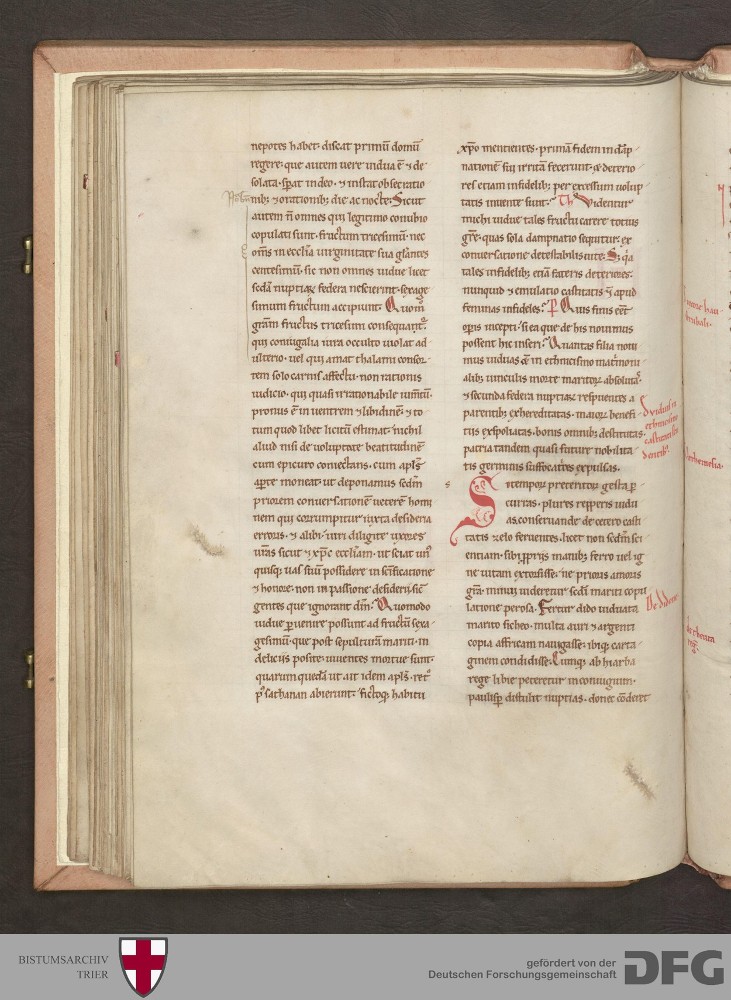 nepotes habet· discat primū domū
regere· que autem uere uidua ē ⁊ de
solata· sp̄at in deo· ⁊ instat obsecratio
nib; ⁊ orationib; die ac nocte· Sicut
autem n̄ omnes qui legitimo conubio
copulati sunt· fructum tricesimū· nec
om̄s in eccl̄ia uirginitate sua
centesimū· sic non omnes uidue licet
scd̄a nuptiaꝝ federa nescierint· sexage
simum fructum accipiunt· Quom̄
fructus tricesimi consequant᷑·
qui coniugalia iura occulto uiolat ad
ulterio· uel qui amat thalami consor
tem solo carnis affectu· non rationis
iudicio· qui quasi irrationabile iumentū
pronus ē in uentrem ⁊ libidinē· ⁊ to
tum quod libet licitū estimat· nichil
aliud nisi de uoluptate beatitudinē
cum epicuro coniectans· cum apl̄s
ap̄te moneat· ut deponamus sedm̄
priorem conuersationē ueterē homi
nem qui corrumpitur iuxta desideria
erroris· ⁊ alibi· uiri diligite uxores
ur̄as sicut ⁊ xp̄c eccl̄iam· ut sciat un᷒
quisq; uas suū possidere in sc̄ificatione
⁊ honore· non in passione desiderii· sic̄
gentes que ignorant dm̄· Quomodo
uidue ꝑuenire possunt ad fructū sexa
gesimū· que post sepulturā mariti· in
deliciis posite· uiuentes mortue sunt·
quarum quedā ut ait idem apl̄s· retᵒ
p᷒ sathanan abierunt· fictoq; habitu
xp̄o mentientes· primā fidem in dāp
nationē sui irritā fecerunt· ⁊ deterio
res etiam infidelib; per excessum uolup
tatis inuente sunt· Videntur
michi uidue tales fructu carere totius
gr̄e· quas sola dampnatio sequitur ex
conuersatione detestabilis uite· Si q̇a
tales infidelib; etiā fateris deteriores·
nunquid ⁊ emulatio castitatis ē apud
feminas infideles· P Quis finis eēt
opis incepti· si ea que de his nouimus
possent hic inseri· Quantas filia noui
mus uiduas ⁊ in ethnicismo matimoni
alib; uinculis morte maritoꝝ absolutā·
⁊ secunda federa nuptiaꝝ respuentes a
parentib; exhereditatas· maioꝝ benefi
tiis exspoliatas· bonis omnib; destitutas·
patria tandem quasi future nobilita
tis germinis suffocatrices expulsas.
Si tempoꝝ preteritoꝝ gesta ꝑ
curras· plures repperis uidu
as· conseruande de cetero casti
tatis zelo feruentes· licet non sedm̄ sci
entiam· sibi ꝓpriis manib; ferro uel ig
ne uitam extorsisse· ne prioris amoris
gr̄a· minus uideretur scd̄i mariti copu
latione perosa· Fertur dido uiduata
marito sicheo· multa auri ⁊ argenti
copia affricam nauigasse· ibiq; carta
ginem condidisse· Cumq; ab hiarba
rege libie peteretur in coniugium·
paulisp̄ distulit nuptias· donec cōderet
D uiduis in
ethnicismo
castitatem ser
uantib;
De didone
BISTUMSARCHIV
TRIER
gefördert von der
Deutschen Forschungsgemeinschaft
DFG